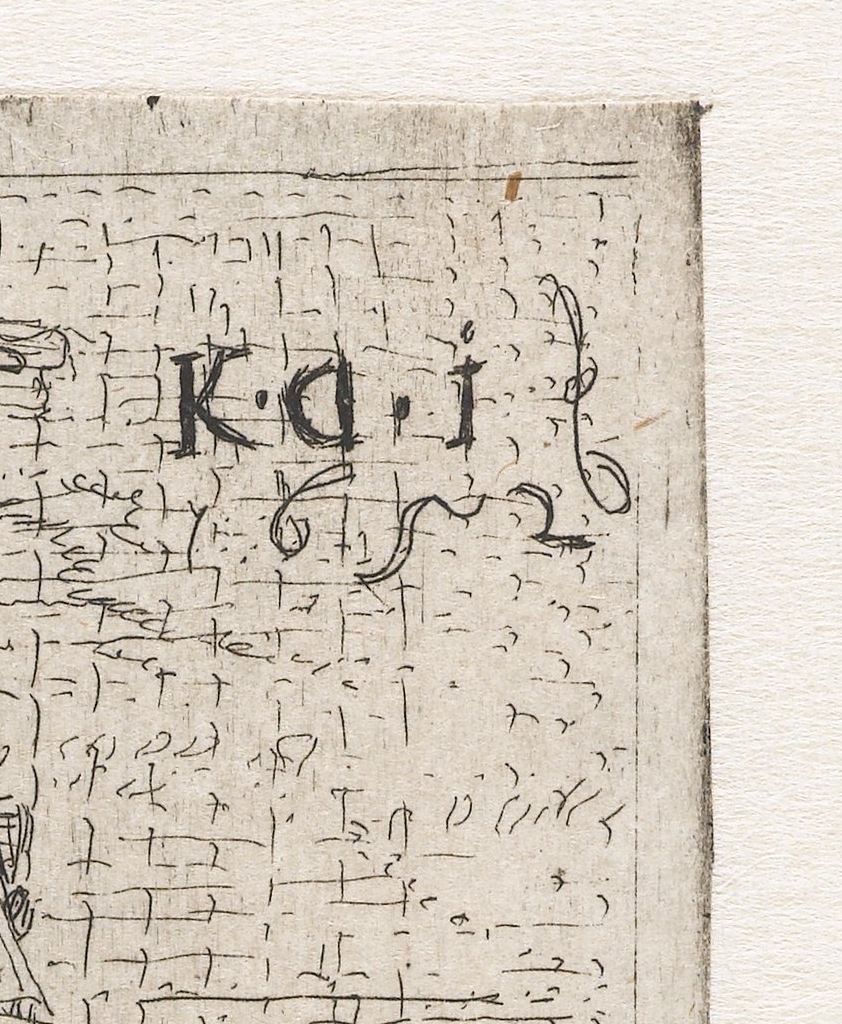 K·a·i